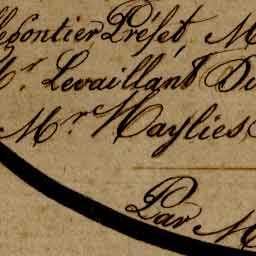 llegontier Préfet, M
Mr Levaillant Du
Mr Maylies
Par M